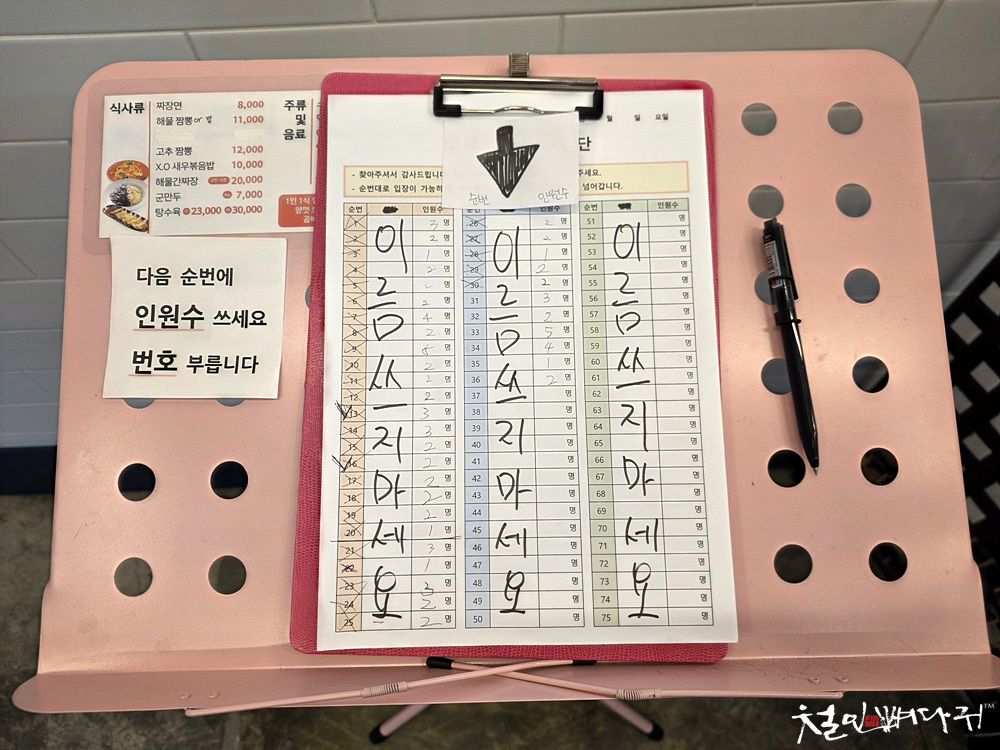 식사류
짜장면 8,000
해물 짬뽕 11,000
고추 짬뽕 12,000
X.O 새우볶음밥 10,000
해물간짜장 20,000
군만두 7,000
탕수육 23,000 30,000
주류
및
음료
1인 1식
다음 순번에
인원수 쓰세요
번호 부릅니다
월 일 요일
단
- 찾아주셔서 감사드립니다
- 순번대로 입장이 가능하
주세요.
넘어갑니다.
순번 인원수
순번 인원수
1 3 명
2 2 명
3 1 명
4 2 명
5 명
6 2 명
7 4 명
8 2 명
9 명
10 2 명
11 2 명
12 2 명
13 3 명
14 3 명
15 2 명
16 2 명
17 2 명
18 2 명
19 2 명
20 1 명
21 3 명
22 1 명
23 3 명
24 2 명
25 2 명
이름쓰지마세요
인원수
26 2 명
27 2 명
28 1 명
29 2 명
30 2 명
31 3 명
32 2 명
33 5 명
34 4 명
35 1 명
36 2 명
37 명
38 명
39 명
40 명
41 명
42 명
43 명
44 명
45 명
46 명
47 명
48 명
49 명
50 명
이름쓰지마세요
순번 인원수
51 명
52 명
53 명
54 명
55 명
56 명
57 명
58 명
59 명
60 명
61 명
62 명
63 명
64 명
65 명
66 명
67 명
68 명
69 명
70 명
71 명
72 명
73 명
74 명
75 명
이름쓰지마세요
철민뼈다귀™